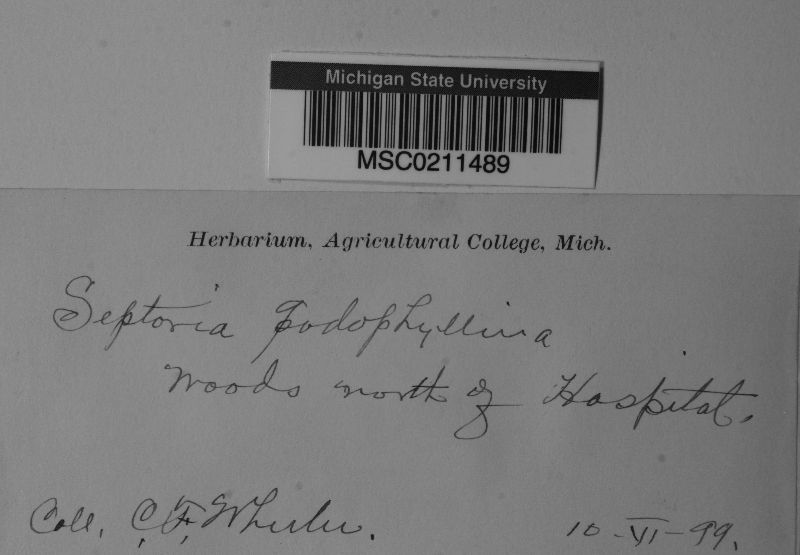 Michigan State University
MSC0211489
Herbarium, Agricultural College, Mich.
Septoria podophyllina
Woods north of Hospital.
Coll. C.F. Wheeler. 10-VI-99.